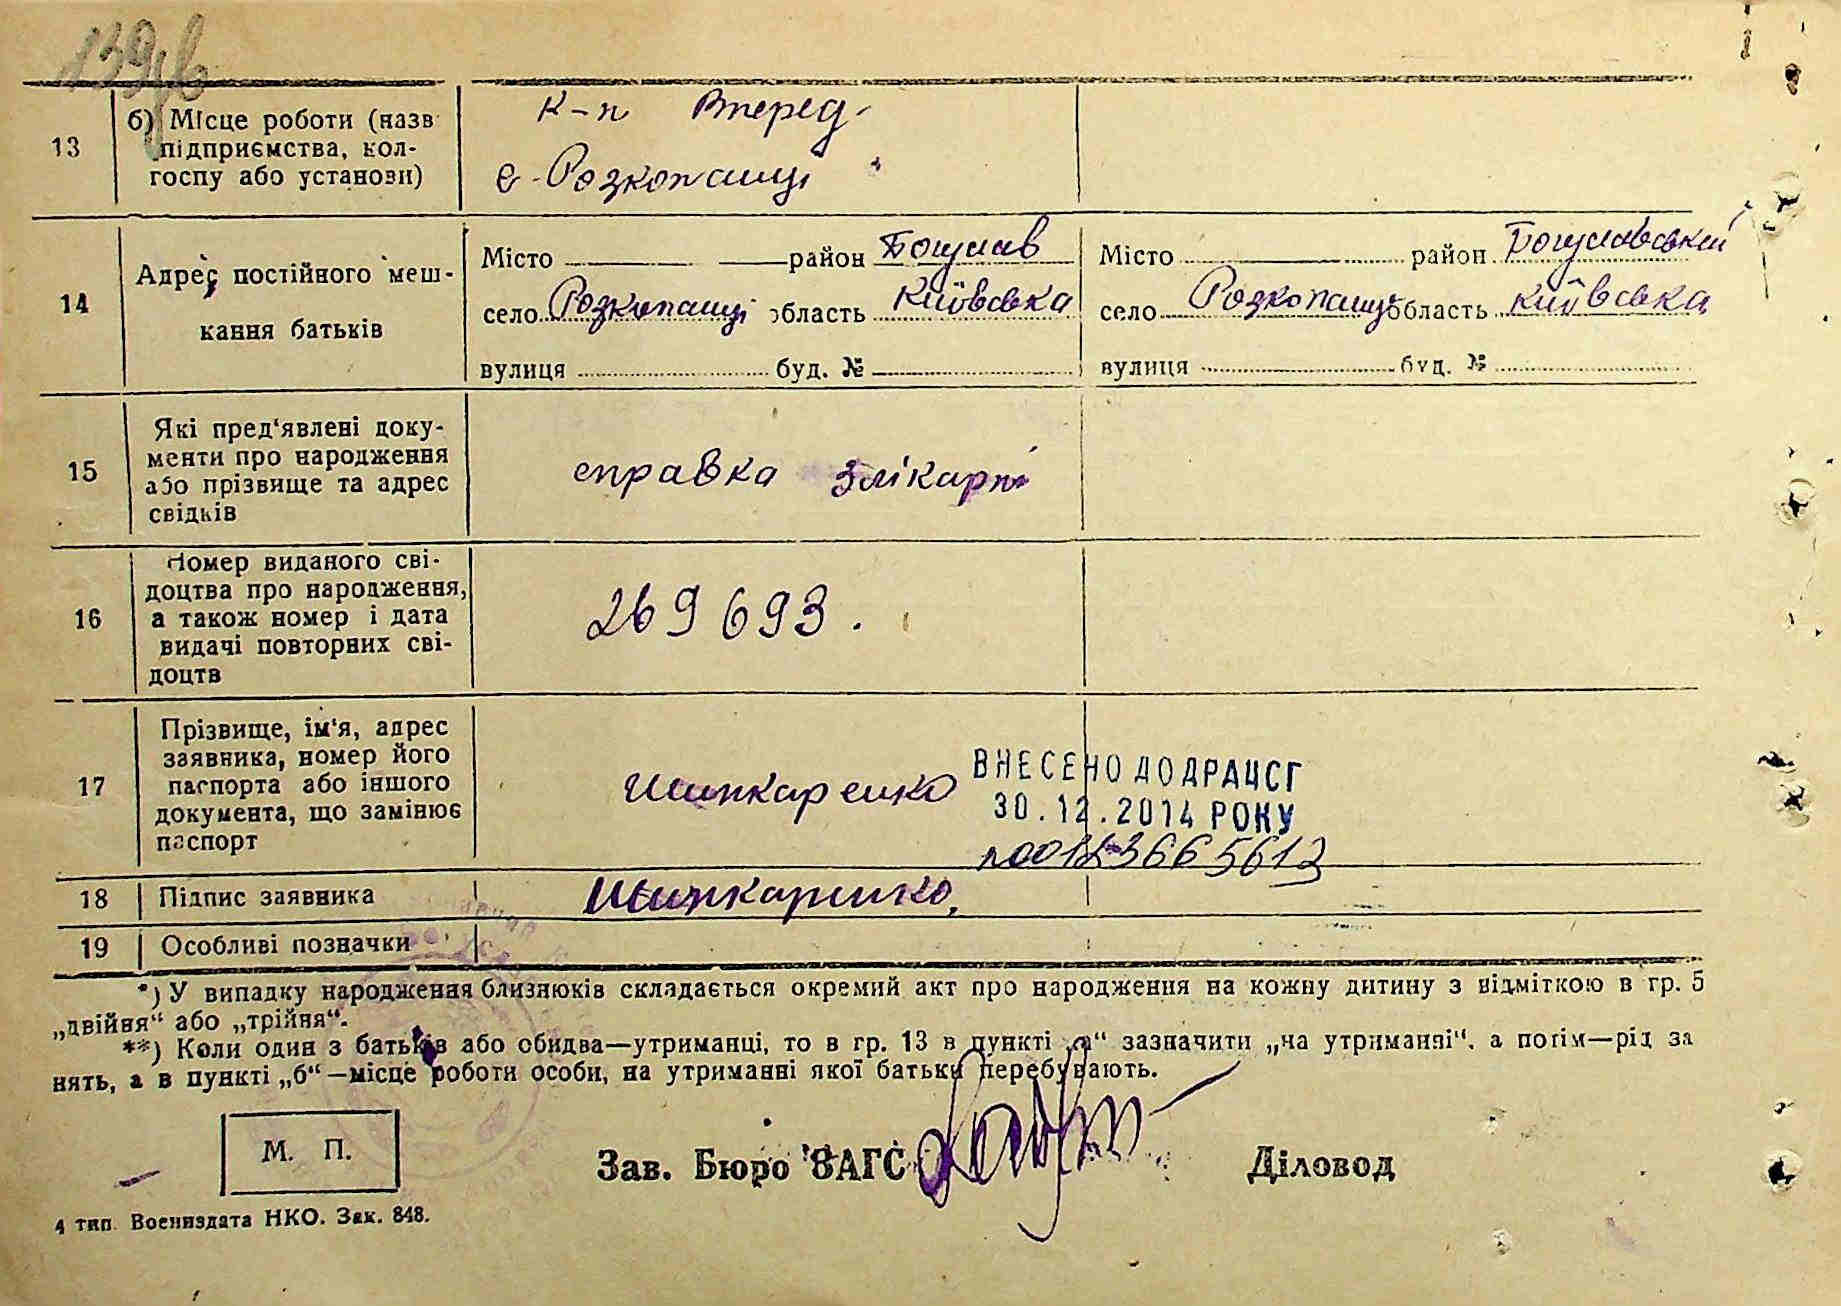 139зв
13
б) Місце роботи (назв підприємства, колгоспу або установи)
к-п Вперед
с. Розкопанці
14
Адрес постійного мешкання батьків
Місто район Богуслав
село Розкопанці область Київська
вулиця буд. №
Місто район Богуславський
село Розкопанці область Київська
вулиця буд. №
15
Які пред'явлені документи про народження або прізвище та адрес свідків
справка злікарні
16
Номер виданого свідоцтва про народження, а також номер і дата видачі повторних свідоцтв
269693.
17
Прізвище, ім'я, адрес заявника, номер його паспорта або іншого документа, що замінює паспорт
Шинкаренко
ВНЕСЕНО ДО ДРАЦСГ
30.12.2014 РОКУ
18
Підпис заявника
Шинкаренко
19
Особливі позначки
*) У випадку народження близнюків складається окремий акт про народження на кожну дитину з відміткою в гр. 5
„двійня“ або „трійня“.
**) Коли один з батьків або обидва—утриманці, то в гр. 13 в пункті „а“ зазначити „на утриманні“, а потім—рід за
нять, а в пункті „б“—місце роботи особи, на утриманні якої батьки перебувають.
М. П.
Зав. Бюро ЗАГС
Діловод
4 тип. Воениздата НКО. Зак. 848.